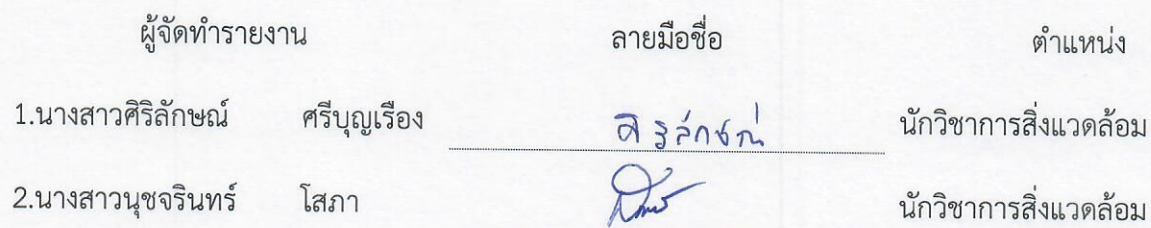 ผู้จัดทำรายงาน ลายมือชื่อ ตำแหน่ง
1.นางสาวศิริลักษณ์ ศรีบุญเรือง ศิริลักษณ์ นักวิชาการสิ่งแวดล้อม
2.นางสาวนุชจรินทร์ โสภา นักวิชาการสิ่งแวดล้อม